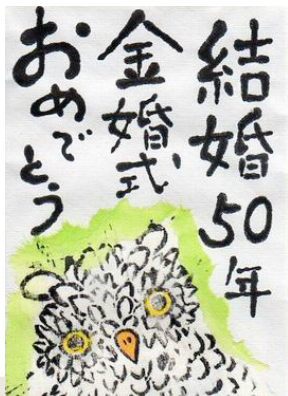 結婚50年
金婚式
おめでとう